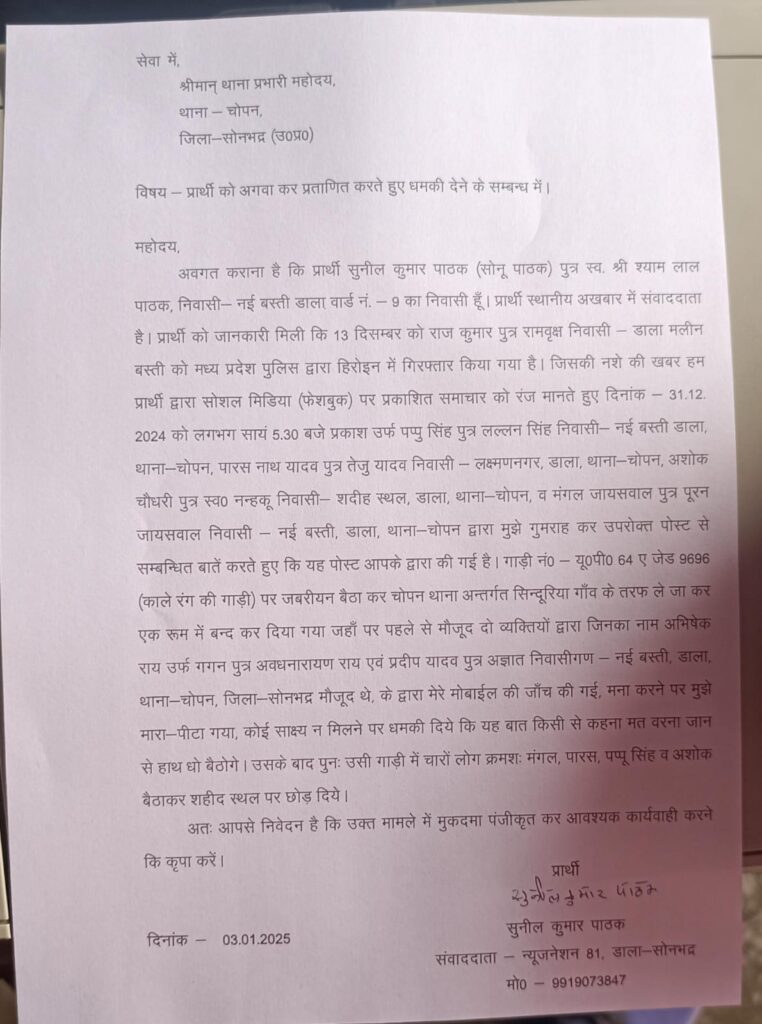 सेवा में,
श्रीमान् थाना प्रभारी महोदय,
थाना – चोपन,
जिला–सोनभद्र (उ0प्र0)
विषय – प्रार्थी को अगवा कर प्रताणित करते हुए धमकी देने के सम्बन्ध में।
महोदय,
अवगत कराना है कि प्रार्थी सुनील कुमार पाठक (सोनू पाठक) पुत्र स्व. श्री श्याम लाल
पाठक, निवासी– नई बस्ती डाला वार्ड नं. – 9 का निवासी हूँ। प्रार्थी स्थानीय अखबार में संवाददाता
है। प्रार्थी को जानकारी मिली कि 13 दिसम्बर को राज कुमार पुत्र रामवृक्ष निवासी – डाला मलीन
बस्ती को मध्य प्रदेश पुलिस द्वारा हिरोइन में गिरफ्तार किया गया है। जिसकी नशे की खबर हम
प्रार्थी द्वारा सोशल मिडिया (फेशबुक) पर प्रकाशित समाचार को रंज मानते हुए दिनांक – 31.12.
2024 को लगभग सायं 5.30 बजे प्रकाश उर्फ पप्पु सिंह पुत्र लल्लन सिंह निवासी– नई बस्ती डाला,
थाना–चोपन, पारस नाथ यादव पुत्र तेजु यादव निवासी – लक्ष्मणनगर, डाला, थाना–चोपन, अशोक
चौधरी पुत्र स्व0 नन्हकू निवासी– शदीह स्थल, डाला, थाना–चोपन, व मंगल जायसवाल पुत्र पूरन
जायसवाल निवासी – नई बस्ती, डाला, थाना–चोपन द्वारा मुझे गुमराह कर उपरोक्त पोस्ट से
सम्बन्धित बातें करते हुए कि यह पोस्ट आपके द्वारा की गई है। गाड़ी नं0 – यू0पी0 64 ए जेड 9696
(काले रंग की गाड़ी) पर जबरीयन बैठा कर चोपन थाना अन्तर्गत सिन्दूरिया गाँव के तरफ ले जा कर
एक रूम में बन्द कर दिया गया जहाँ पर पहले से मौजूद दो व्यक्तियों द्वारा जिनका नाम अभिषेक
राय उर्फ गगन पुत्र अवधनारायण राय एवं प्रदीप यादव पुत्र अज्ञात निवासीगण – नई बस्ती, डाला,
थाना–चोपन, जिला–सोनभद्र मौजूद थे, के द्वारा मेरे मोबाईल की जाँच की गई, मना करने पर मुझे
मारा–पीटा गया, कोई साक्ष्य न मिलने पर धमकी दिये कि यह बात किसी से कहना मत वरना जान
से हाथ धो बैठोगे। उसके बाद पुनः उसी गाड़ी में चारों लोग क्रमशः मंगल, पारस, पप्पू सिंह व अशोक
बैठाकर शहीद स्थल पर छोड़ दिये।
अतः आपसे निवेदन है कि उक्त मामले में मुकदमा पंजीकृत कर आवश्यक कार्यवाही करने
कि कृपा करें।
प्रार्थी
सुनील कुमार पाठक
सुनील कुमार पाठक
दिनांक – 03.01.2025
संवाददाता – न्यूजनेशन 81, डाला–सोनभद्र
मो0 – 9919073847